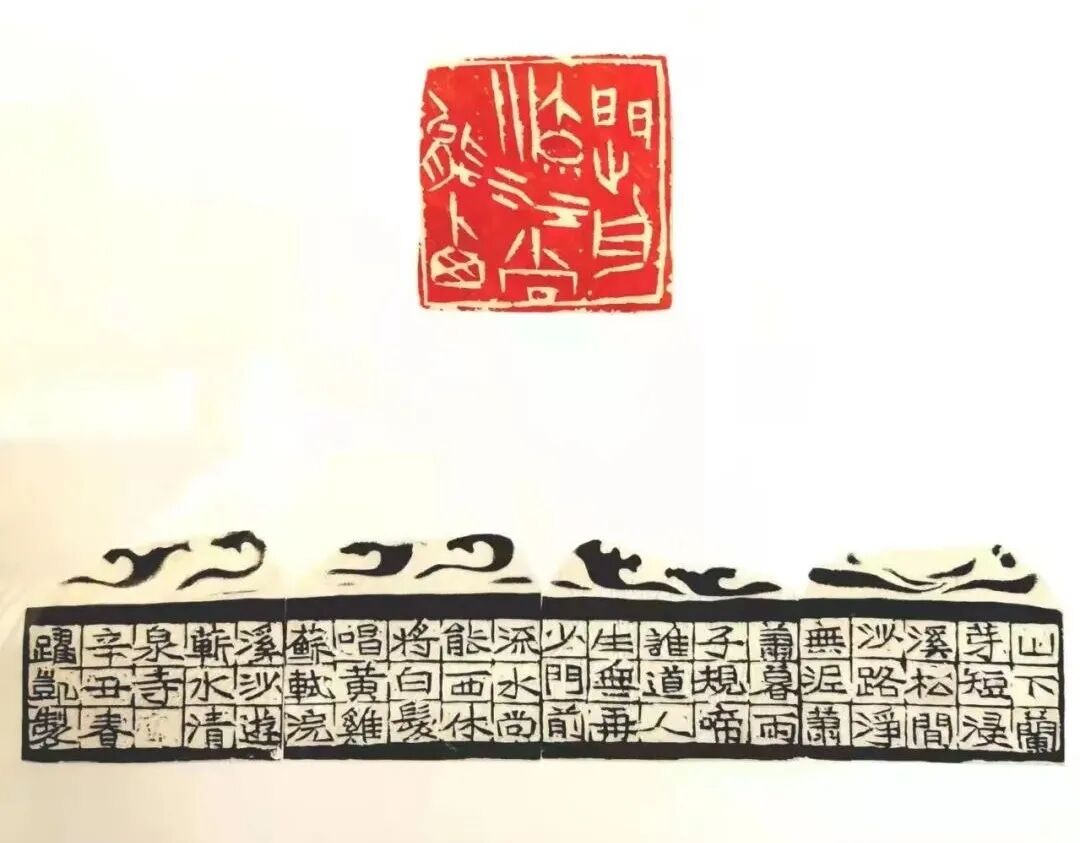 門前
流水尚
能西
山下蘭
芽短浸
溪松間
沙路淨
無泥蕭
蕭暮雨
子規啼
誰道人
生無再
少門前
流水尚
能西休
將白髮
唱黃雞
蘇軾浣
溪沙遊
蘄水清
泉寺
辛丑春
躍凱製